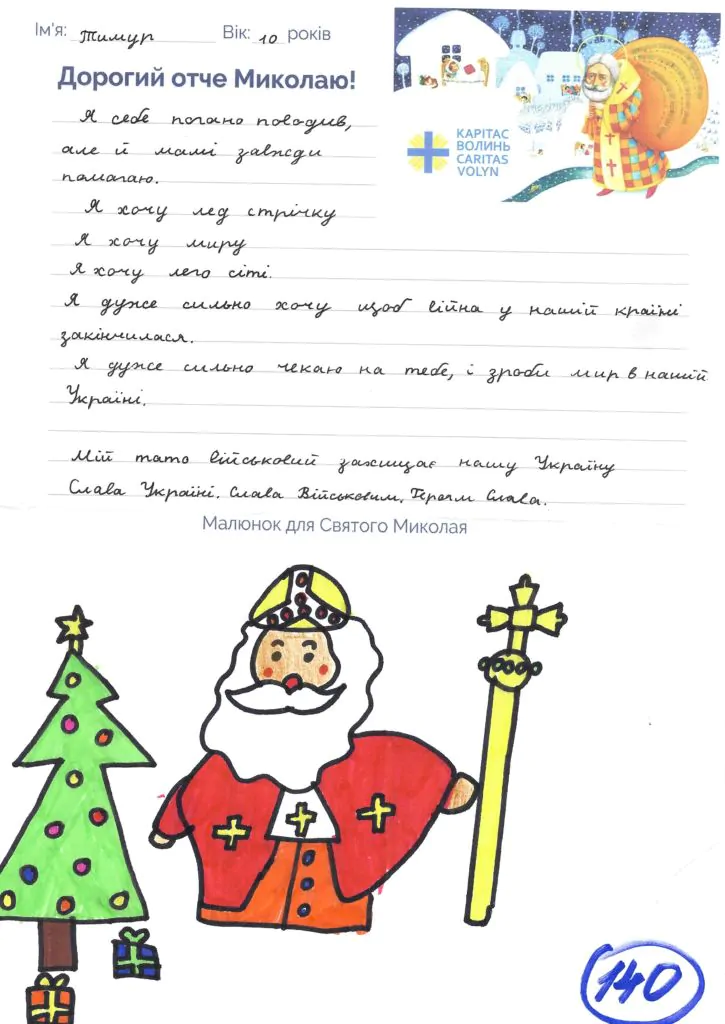 Ім'я: Тимур Вік: 10 років
Дорогий отче Миколаю!
КАРІТАС
ВОЛИНЬ
CARITAS
VOLYN
Я себе погано поводив,
але й мамі завжди
помагаю.
Я хочу лед стрічку
Я хочу миру
Я хочу лего сіті.
Я дуже сильно хочу щоб війна у нашій країні
закінчилася.
Я дуже сильно чекаю на тебе, і зроби мир в наший
Україні.
Мій тато військовий захищає нашу Україну
Слава Україні. Слава Військовим. Героям Слава.
Малюнок для Святого Миколая
140